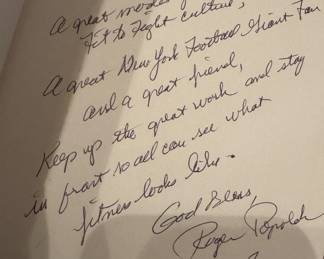 A great model
Fit to Fight culture,
A great New York Football Giant Fan
and a great friend,
Keep up the great work and stay
in front so all can see what
fitness looks like.
God Bless,
Roger